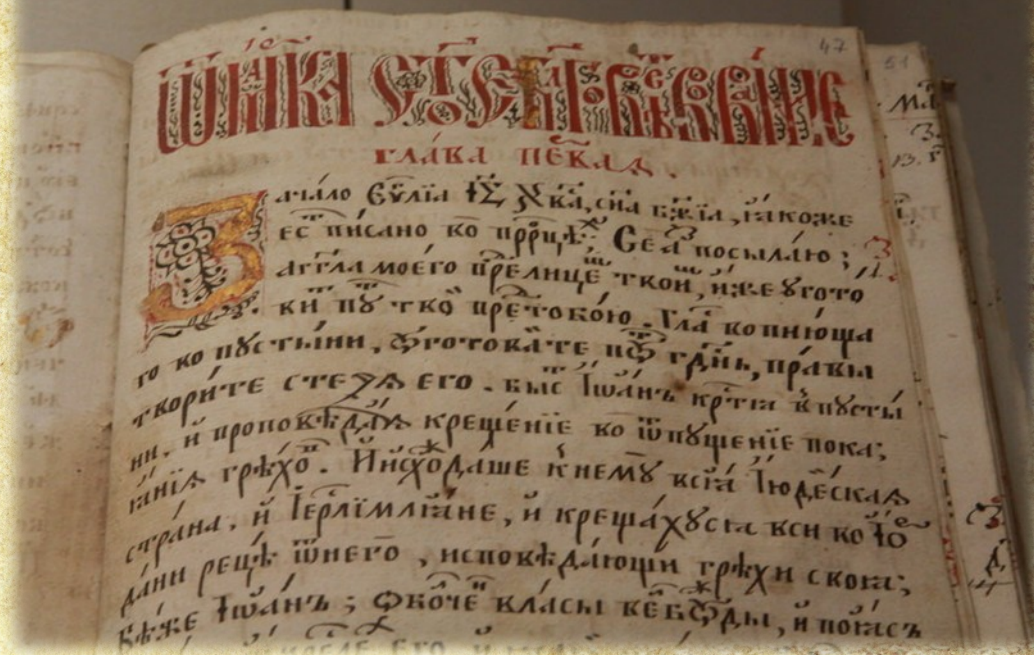 ѿ ма́рка ст҃о́е бл҃говѣствова́нїе
гла́ва пе҃ркаꙗ.
Зача́ло Еѵ҃лїа Іс҃ Хв҃а, сн҃а бж҃їа, ꙗкоже
ес пи́сано во прⷪ҇ро́цѣⷯ, Се а҃зъ посыла́ю;
аггл҃а моего̀ пред̾ лице́ⷨ твои́ⷨ, и́же ѹгото
ви́ⷮ пꙋ́ⷮ тво́ⷨ преⷣ тобо́ю. Гла́ⷭ вопиюща
го во пꙋсты́ни, ѹ҆готова́йте пꙋ́ⷮ гдⷭ҇нь, пра́вы
твори́те стезѧ̀ его. бысⷮ Іѡа́нъ крⷭ҇тѧ в̾пꙋсты́
ни. и҆ проповѣ́даѧ креще́нїе во ѿпꙋще́нїе пока;
ꙗ́нїѧ грѣхо́въ. И҆исхо́даше к̾немꙋ̀ всѧ̀ Їюде́йскаѧ
стра́на. и҆ Їерⷭ҇лїмлѧ́не, и҆ креща́хꙋсѧ вси во Їо҆р
да́ни рецѣ̀ ѿнего̀, исповѣда́ющи грѣхи своꙗ;
Бѣ́же Їѡа́нъ; ѡ҆боче́нъ вла́сы велбл҃ꙋ́жды, и по́ꙗсъ